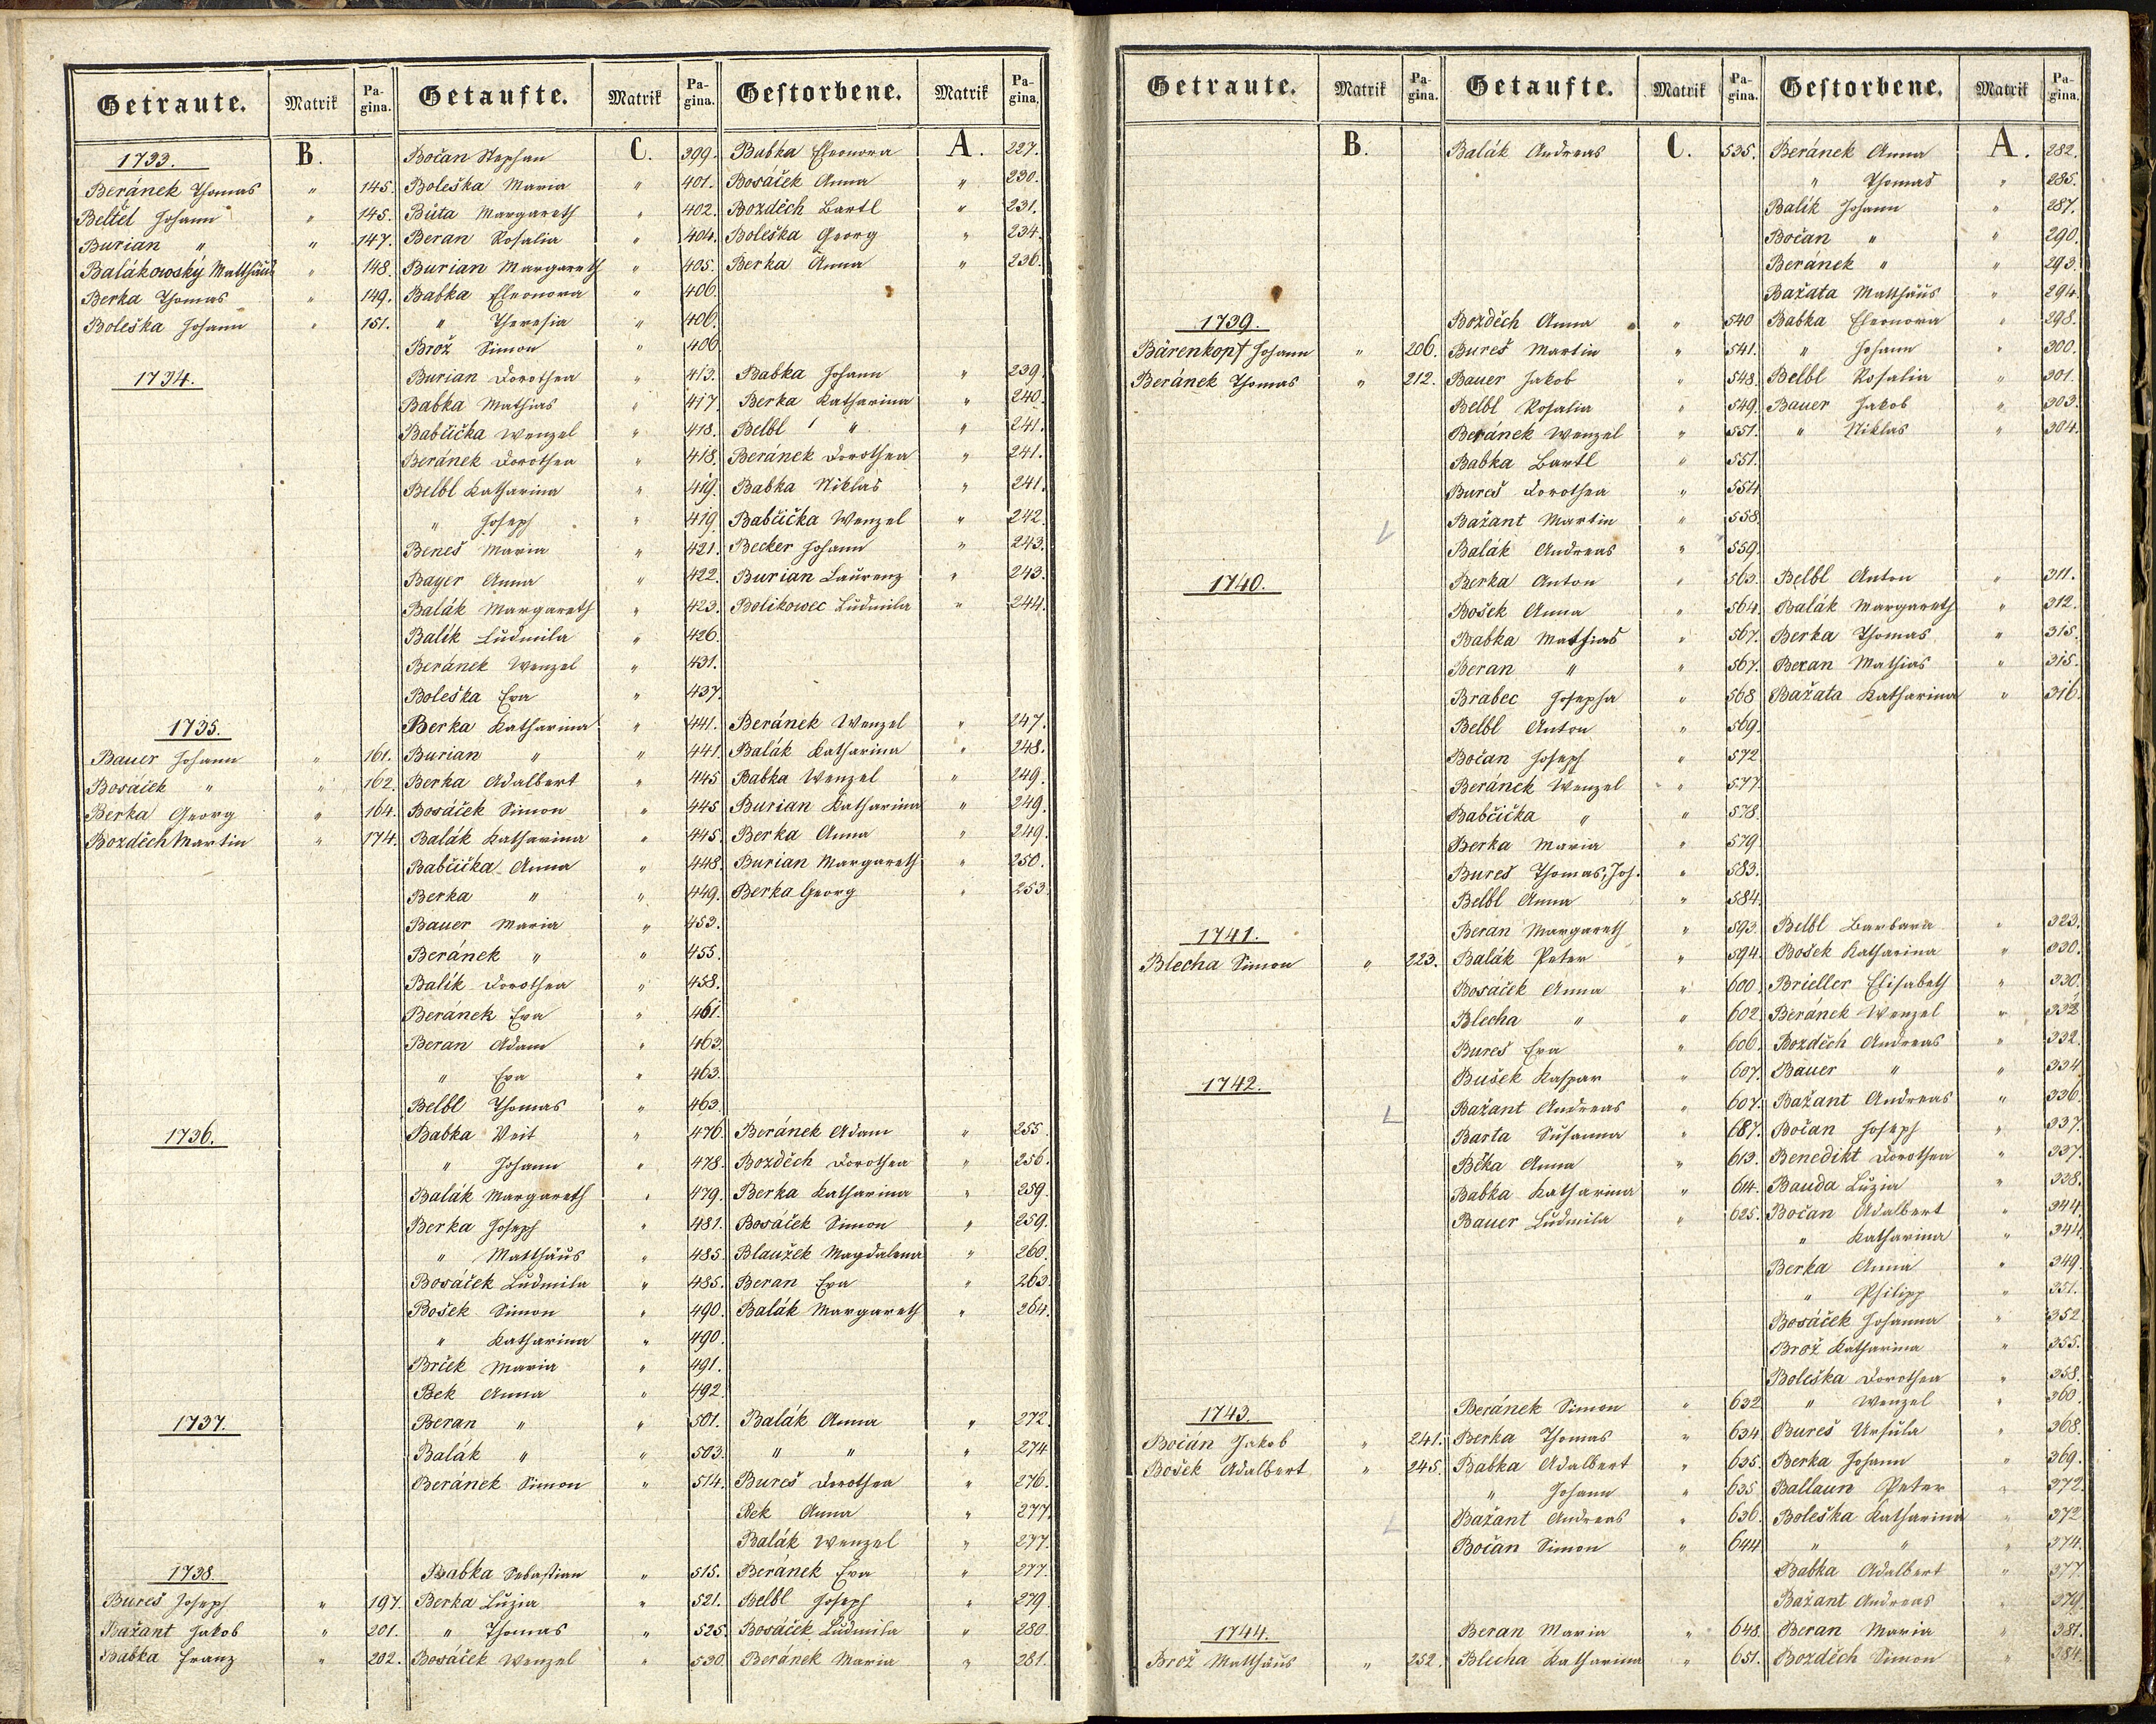 Getraute. Matrik Pagina. Getaufte. Matrik Pagina. Gestorbene. Matrik Pagina.
1733. B. Bočan Stephan C. 399. Babka Eleonora A. 227.
Beránek Thomas " 145. Boleška Maria " 401. Bosáček Anna " 230.
Beltčl Johann " 145. Búta Margareth " 402. Bozděch Bartl " 231.
Burian " " 147. Beran Rosalia " 404. Boleška Georg " 234.
Balákowský Matthäus " 148. Burian Margareth " 405. Berka Anna " 236.
Berka Thomas " 149. Babka Eleonora " 406.
Boleška Johann " 151. " Theresia " 406.
Brož Simon " 406
1734. Burian Dorothea " 413. Babka Johann " 239.
Babka Mathias " 417. Berka Katharina " 240.
Babčička Wenzel " 418. Belbl " " 241.
Beránek Dorothea " 418. Beránek Dorothea " 241.
Belbl Katharina " 419. Babka Niklas " 241.
" Joseph " 419. Babčička Wenzel " 242.
Beneš Maria " 421. Becker Johann " 243.
Bayer Anna " 422. Burian Laurenz " 243.
Balák Margareth " 423. Bolikowec Ludmila " 244.
Balík Ludmila " 426.
Beránek Wenzel " 431.
Boleška Eva " 437.
1735. Berka Katharina " 441. Beránek Wenzel " 247.
Bauer Johann " 161. Burian " " 441. Balák Katharina " 248.
Bosáček " " 162. Berka Adalbert " 445 Babka Wenzel " 249.
Berka Georg " 164. Bosáček Simon " 445 Burian Katharina " 249.
Bozděch Martin " 174. Balák Katharina " 445. Berka Anna " 249.
Babčička Anna " 448. Burian Margareth " 250.
Berka " " 449. Berka Georg " 253.
Bauer Maria " 453.
Beránek " " 455.
Balík Dorothea " 458.
Beránek Eva " 461.
Beran Adam " 463.
" Eva " 463.
Belbl Thomas " 463.
1736. Babka Veit " 476. Beránek Adam " 255.
" Johann " 478. Bozděch Dorothea " 256.
Balák Margareth " 479. Berka Katharina " 259.
Berka Joseph " 481. Bosáček Simon " 259.
" Matthäus " 485. Blaužek Magdalena " 260.
Bosáček Ludmila " 485. Beran Eva " 263.
Bošek Simon " 490. Balák Margareth " 264.
" Katharina " 490.
Brček Maria " 491.
Bek Anna " 492.
1737. Beran " " 501. Balák Anna " 272.
Balák " " 503. " " " 274
Beránek Simon " 514. Bureš Dorothea " 276.
Bek Anna " 277.
Balák Wenzel " 277.
1738. Babka Sebastian " 515. Beránek Eva " 277.
Bureš Joseph " 197. Berka Luzia " 521. Belbl Joseph " 279.
Bažant Jakob " 201. " Thomas " 525. Bosáček Ludmila " 280.
Babka Franz " 202. Bosáček Wenzel " 530. Beránek Maria " 281.
Getraute. Matrik Pagina. Getaufte. Matrik Pagina. Gestorbene. Matrik Pagina.
B. Balák Andreas C. 535. Beránek Anna A. 282.
" Thomas " 285.
Balík Johann " 287.
Bočan " " 290.
Beránek " " 293.
Bažata Matthäus " 294.
1739. Bozděch Anna " 540 Babka Eleonora " 298.
Bärenkopf Johann " 206. Bureš Martin " 541. " Johann " 300.
Beránek Thomas " 212. Bauer Jakob " 548. Belbl Rosalia " 301.
Belbl Rosalia " 549. Bauer Jakob " 303.
Beránek Wenzel " 551. " Niklas " 304.
Babka Bartl " 551.
Bureš Dorothea " 554
Bažant Martin " 558.
Balák Andreas " 559.
1740. Berka Anton " 563. Belbl Anton " 311.
Bošek Anna " 564. Balák Margareth " 312.
Babka Mathias " 567. Berka Thomas " 315.
Beran " " 567. Beran Mathias " 315.
Brabec Josepha " 568 Bažata Katharina " 316.
Belbl Anton " 569.
Bočan Joseph " 572
Beránek Wenzel " 577.
Babčička " " 578.
Berka Maria " 579.
Bureš Thomas, Joh. " 583.
Belbl Anna " 584.
1741. Beran Margareth " 593. Belbl Barbara " 323.
Blecha Simon " 223. Balák Peter " 594. Bošek Katharina " 330.
Bosáček Anna " 600. Brieller Elisabeth " 330.
Blecha " " 602. Beránek Wenzel " 332
Bureš Eva " 606. Bozděch Andreas " 332.
1742. Bušek Kaspar " 607. Bauer " " 334
Bažant Andreas " 607. Bažant Andreas " 336.
Barta Susanna " 687. Bočan Joseph " 337.
Běka Anna " 613. Benedikt Dorothea " 337.
Babka Katharina " 614. Bauda Luzia " 338.
Bauer Ludmila " 625. Bočan Adalbert " 344
" Katharina " 344.
Berka Anna " 349.
" Philipp " 351.
Bosáček Johanna " 352
Brož Katharina " 355.
Boleška Dorothea " 358.
1743. Beránek Simon " 632 " Wenzel " 360.
Bočán Jakob " 241. Berka Thomas " 634 Bureš Ursula " 368.
Bošek Adalbert " 245. Babka Adalbert " 635. Berka Johann " 369.
" Johann " 635 Ballaun Peter " 372.
Bažant Andreas " 636. Boleška Katharina " 372
Bočan Simon " 644 " " " 374.
Babka Adalbert " 377.
Bažant Andreas " 379
1744. Beran Maria " 648. Beran Maria " 381.
Brož Matthäus " 252. Blecha Katharina " 651. Bozděch Simon " 384.